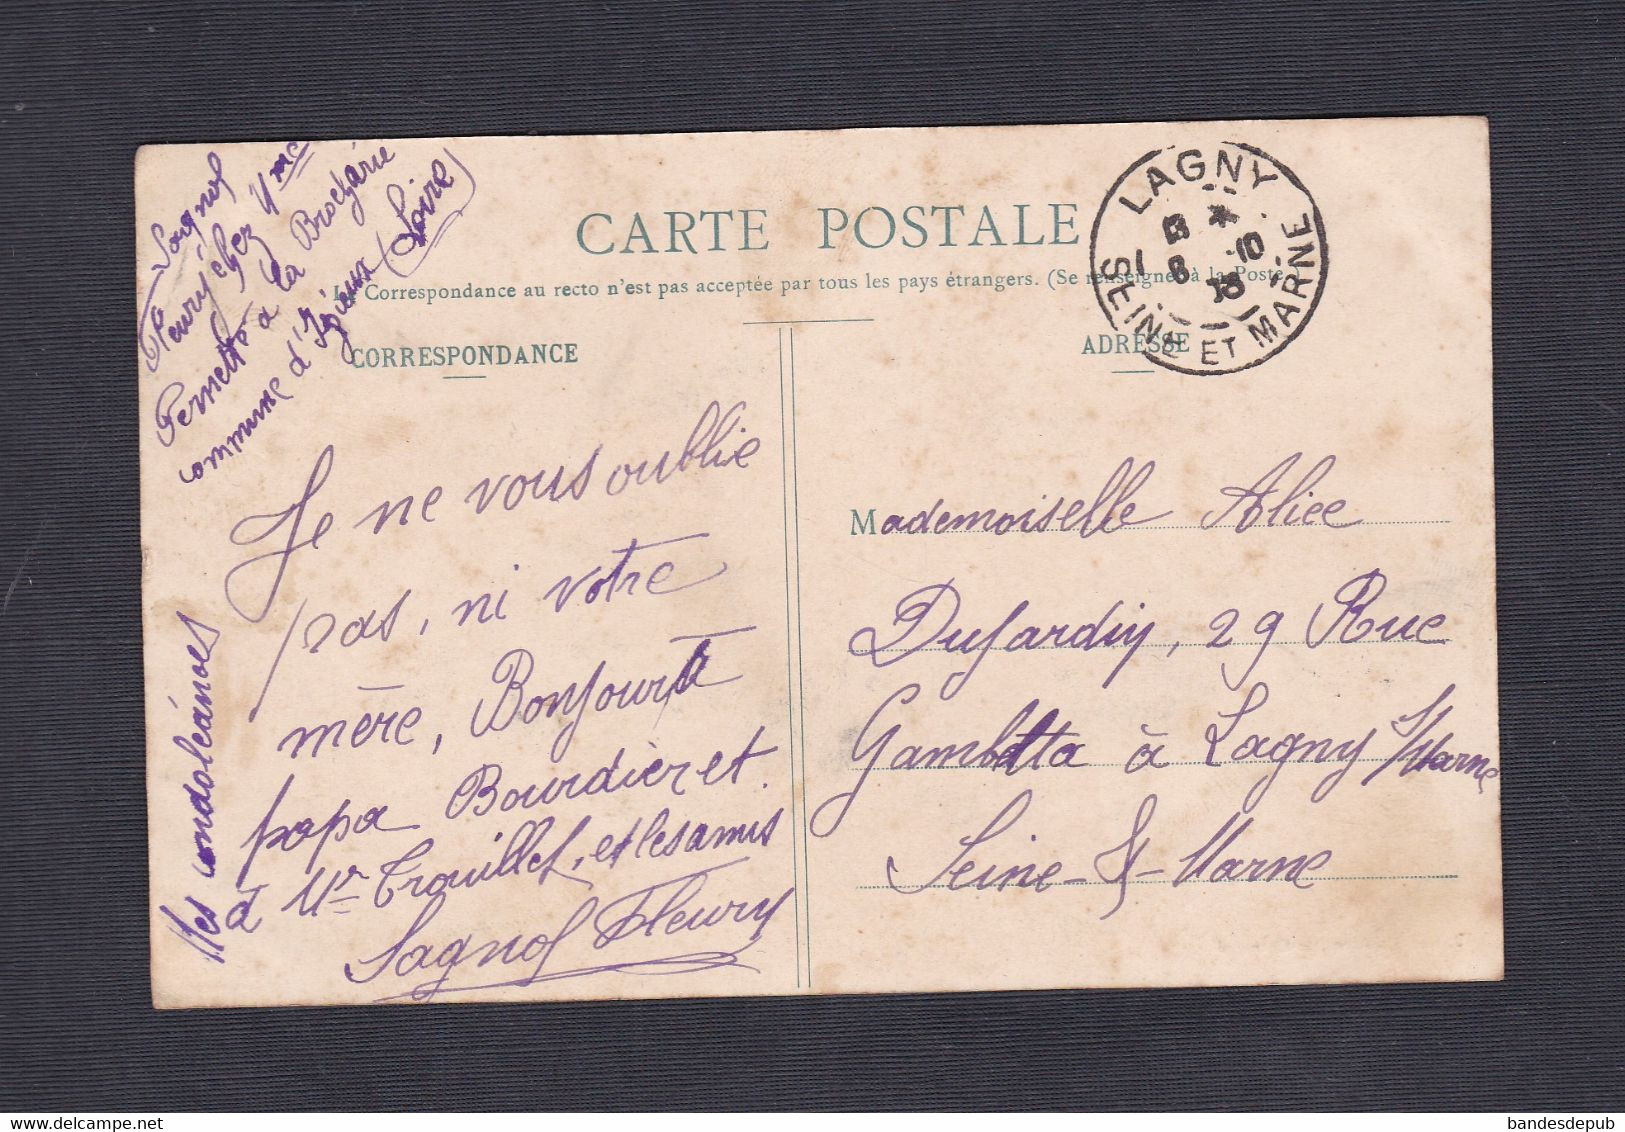 Sagnol
Fleury chez Mme
Pernette à la Brochárie
commune d'Izieux (Loire)
CARTE POSTALE
La Correspondance au recto n'est pas acceptée par tous les pays étrangers. (Se renseigner à la Poste.)
CORRESPONDANCE
ADRESSE
LAGNY
SEINE ET MARNE
Je ne vous oublie
pas, ni votre
mère, Bonjour à
papa Bourdier et
à Mr Trouillet, et les amis
Sagnol Fleury
Mes condoléances
Mademoiselle Alice
Dujardin, 29 Rue
Gambetta à Lagny s/Marne
Seine-&-Marne
delcampe.net
bandesdepub